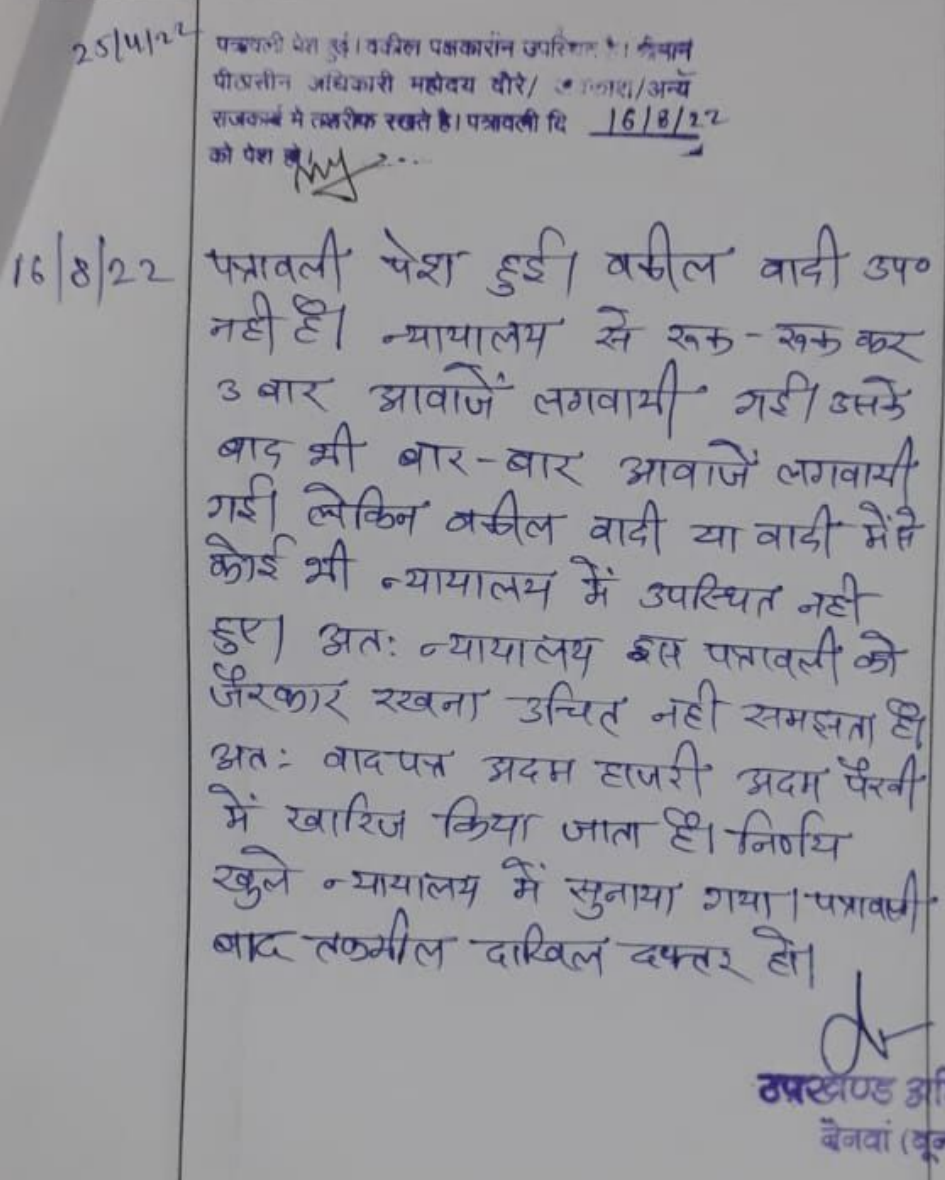 25/4/22 पत्रावली पेश हुई। वकील पक्षकारान उपस्थित है। श्रीमान
पीठासीन अधिकारी महोदय दौरे/ अवकाश/अन्य
राजकार्य मे तशरीफ रखते है। पत्रावली दि 16/8/22
को पेश हो।
16/8/22 पत्रावली पेश हुई। वकील वादी उप०
नही है। न्यायालय से रूक-रूक कर
3 बार आवाजें लगवायी गई। उसके
बाद भी बार-बार आवाजें लगवायी
गई। लेकिन वकील वादी या वादी मेंसे
कोई भी न्यायालय में उपस्थित नही
हुए। अतः न्यायालय इस पत्रावली को
जैरकार रखना उचित नही समझता है।
अतः वादपत्र अदम हाजरी अदम पैरवी
में खारिज किया जाता है। निर्णय
खुले न्यायालय में सुनाया गया। पत्रावली
बाद तकमील दाखिल दफ्तर हो।
उपखण्ड अधि
नैनवां (बून्